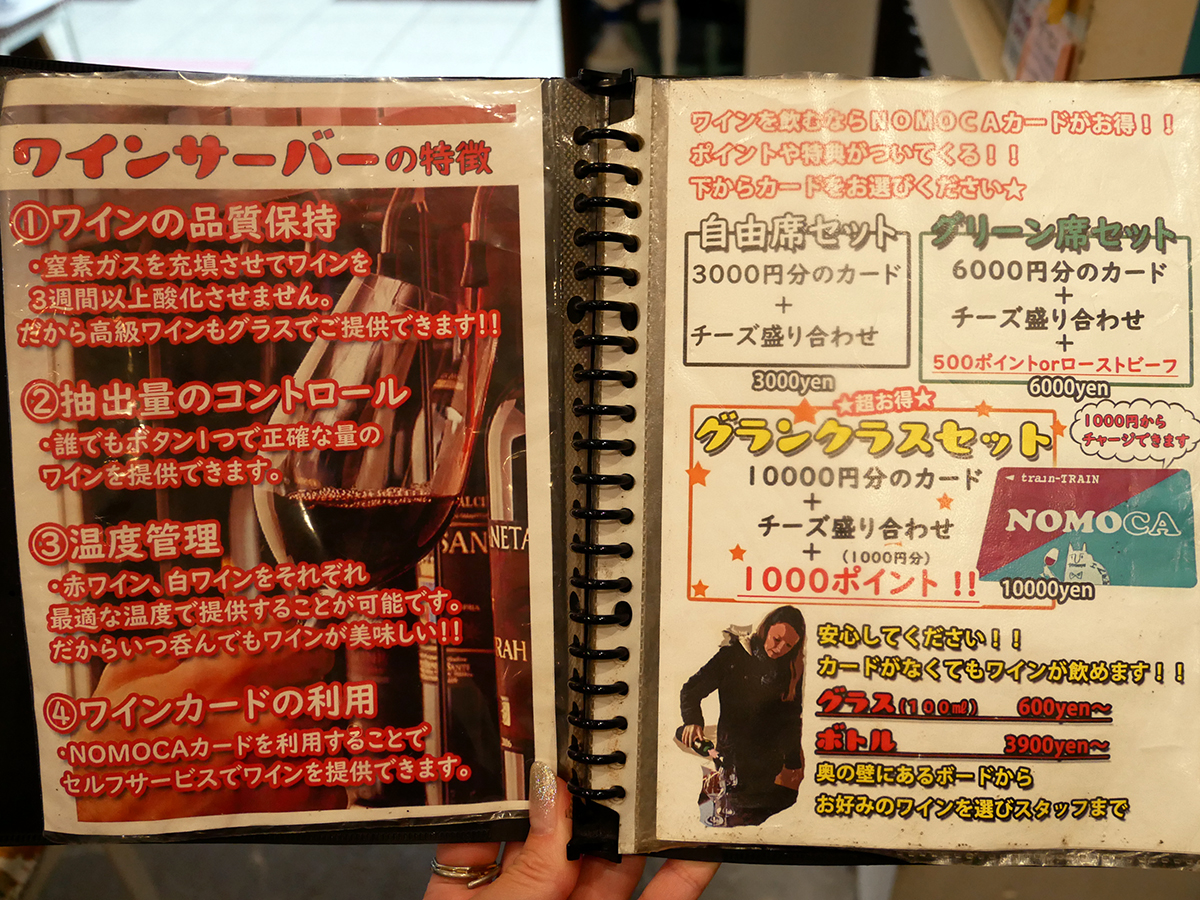 ワインサーバーの特徴
①ワインの品質保持
・窒素ガスを充填させてワインを
3週間以上酸化させません。
だから高級ワインもグラスでご提供できます!!
②抽出量のコントロール
・誰でもボタン1つで正確な量の
ワインを提供できます。
③温度管理
・赤ワイン、白ワインをそれぞれ
最適な温度で提供することが可能です。
だからいつ呑んでもワインが美味しい!!
④ワインカードの利用
・NOMOCAカードを利用することで
セルフサービスでワインを提供できます。
SAN
NETA
RAH
ワインを飲むならNOMOCAカードがお得！！
ポイントや特典がついてくる！！
下からカードをお選びください★
自由席セット
3000円分のカード
+
チーズ盛り合わせ
3000yen
グリーン席セット
6000円分のカード
+
チーズ盛り合わせ
+
500ポイントorローストビーフ
6000yen
★超お得★
グランクラスセット
10000円分のカード
+
チーズ盛り合わせ
+ (1000円分)
1000ポイント!!
10000yen
1000円から
チャージできます
train-TRAIN
NOMOCA
安心してください！！
カードがなくてもワインが飲めます！！
グラス(100㎖) 600yen〜
ボトル 3900yen〜
奥の壁にあるボードから
お好みのワインを選びスタッフまで